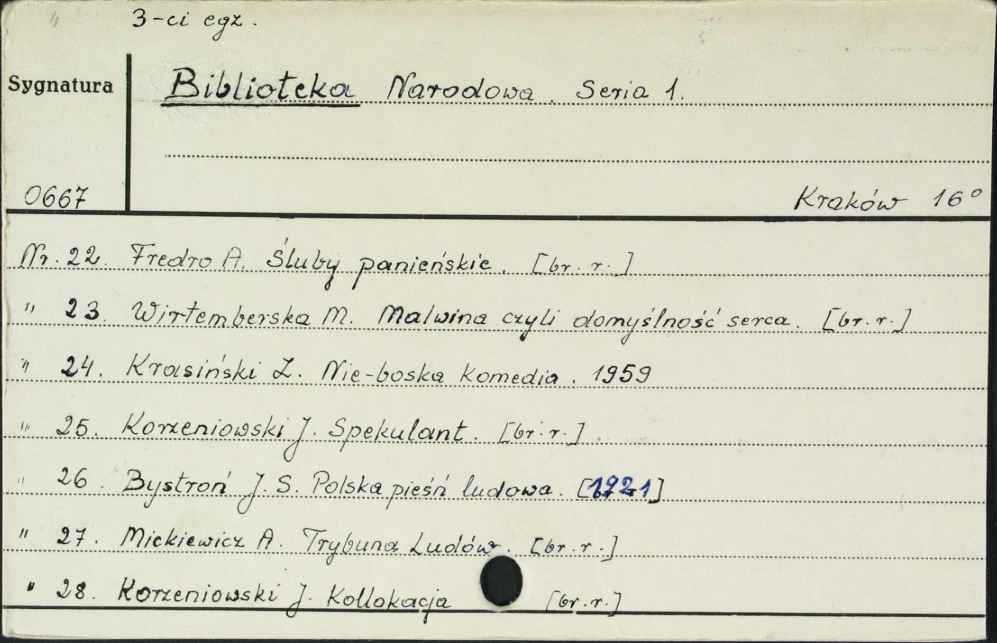 3-ci egz.
Sygnatura
Biblioteka Narodowa. Seria 1.
0667
Kraków 16°
Nr. 22. Fredro A. Śluby panieńskie. [br. r.]
" 23. Wirtemberska M. Malwina czyli domyślność serca. [br. r.]
" 24. Krasiński Z. Nie-boska komedia. 1959
" 25. Korzeniowski J. Spekulant. [br. r.]
" 26. Bystroń J. S. Polska pieśń ludowa. [1921]
" 27. Mickiewicz A. Trybuna Ludów. [br. r.]
" 28. Korzeniowski J. Kollokacja [br. r.]